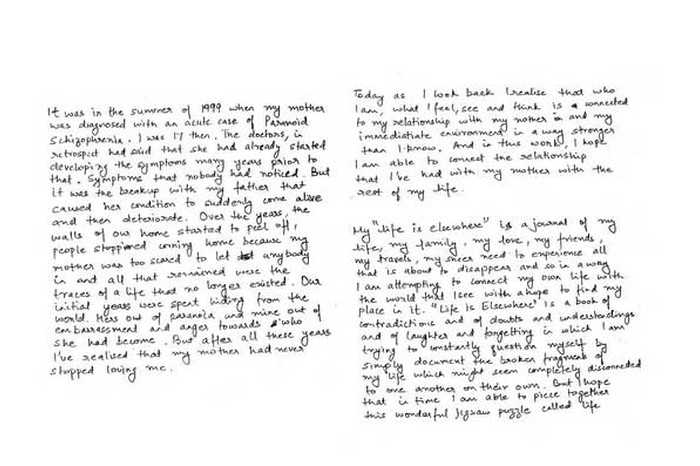 It was in the summer of 1999 when my mother
was diagnosed with an acute case of Paranoid
Schizophrenia. I was 17 then. The doctors, in
retrospect had said that she had already started
developing the symptoms many years prior to
that. Symptoms that nobody had noticed. But
it was the breakup with my father that
caused her condition to suddenly come alive
and then deteriorate. Over the years, the
walls of our home started to peel off,
people stopped coming home because my
mother was too scared to let anybody
in and all that remained were the
traces of a life that no longer existed. Our
initial years were spent hiding from the
world. Hers out of paranoia and mine out of
embarrassment and anger towards who
she had become. But after all these years
I've realised that my mother had never
stopped loving me.
Today as I look back I realise that who
I am, what I feel, see and think is connected
to my relationship with my mother and my
immediate environment in a way stronger
than I know. And in this work, I hope
I am able to connect the relationship
that I've had with my mother with the
rest of my life.
My "Life is Elsewhere" is a journal of my
life, my family, my love, my friends,
my travels, my sheer need to experience all
that is about to disappear and so in a way
I am attempting to connect my own life with
the world that I see with a hope to find my
place in it. "Life is Elsewhere" is a book of
contradictions and of doubts and understandings
and of laughter and forgetting in which I am
trying to constantly question myself by
simply document the broken fragments of
my life which might seem completely disconnected
to one another on their own. But I hope
that in time I am able to piece together
this wonderful jigsaw puzzle called life